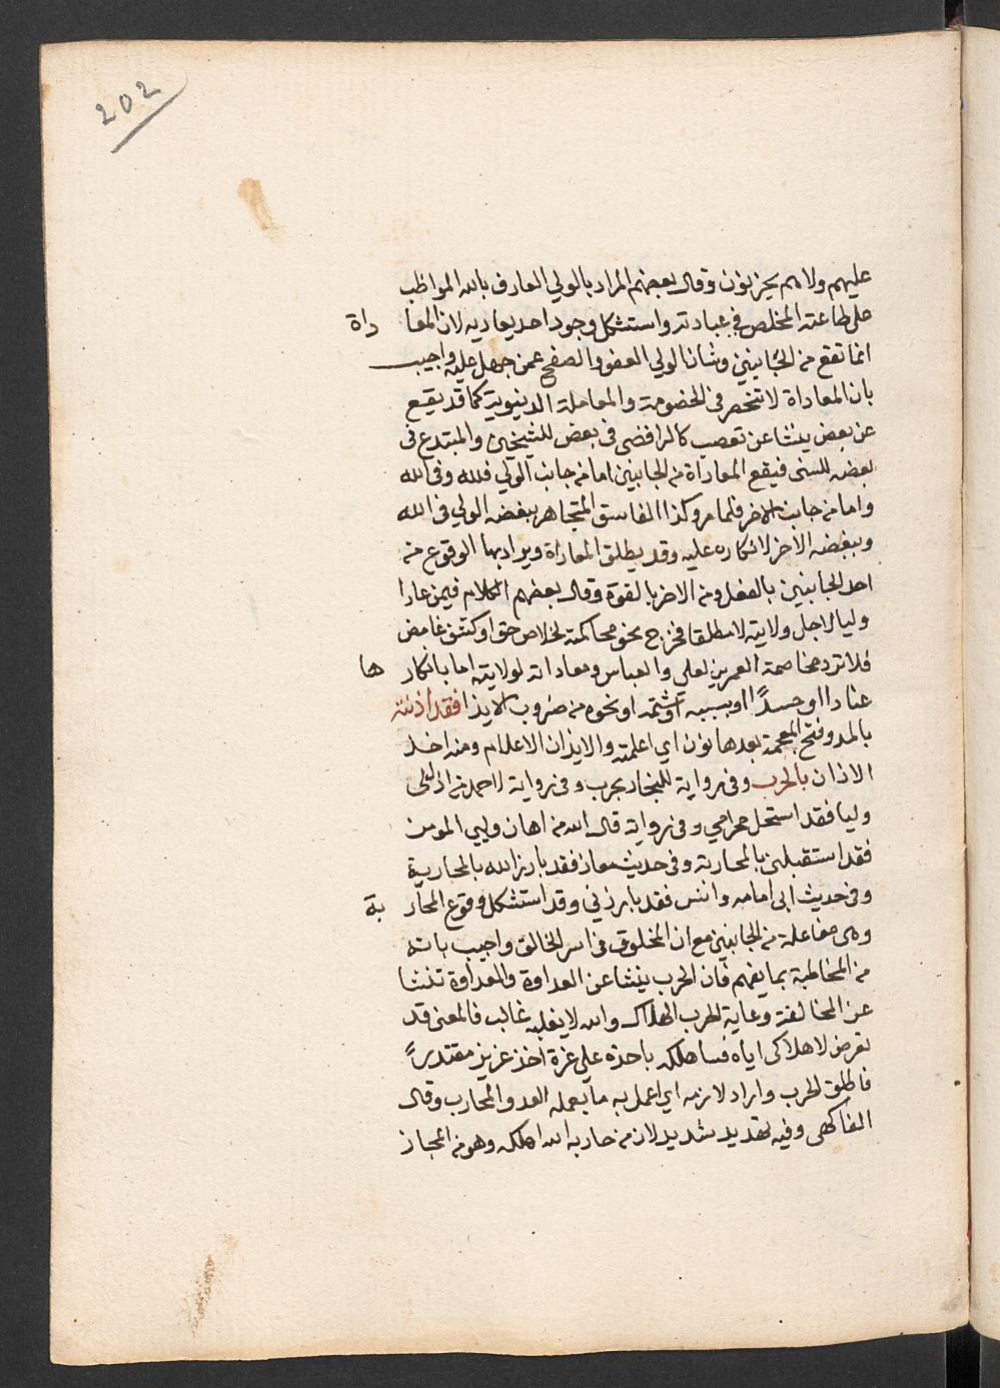 202
عليهم ولا هم يحزنون وقال بعضهم المراد بالولي العارف بالله المواظب
على طاعته المخلص في عبادته واستشكل وجود احد يعاديه لان المعا داة
انما تقع من الجانبين وشان الولي العفو والصفح عمن جهل عليه واجيب
بان المعاداة لا تنحصر في الخصومة والمعاملة الدينوية كما قد يقع
عن بعض ينشا عن تعصب كالرافضي في بعض للشيخين والمبتدع في
بعضه للسنى فيقع المعاداة من الجانبين اما من جانب الولي فلله وفي الله
واما من جانب الاخر فلما مر وكذا الفاسق المتجاهر ببغضه الولي في الله
وببغضه الاخر لانكاره عليه وقد يطلق المعاداة ويراد بها الوقوع من
احد الجانبين بالفعل ومن الاخر بالقوة وقال بعضهم الكلام فيمن عادا
وليا لاجل ولايته لا مطلقا فخرج نحو محاكمة لخلاص حق او كشف غامض
فلا ترد مخاصمة العمرين لعلي والعباس ومعاداته لولايته اما بانكار ها
عنادا او حسدًا او بسببه او شتمه او نحوه من ضروب الايذا فقد آذنته
بالمد وفتح المعجمة بعدها نون اي اعلمته والايذان الاعلام ومنه اخذ
الاذان بالحرب وفي رواية للبخار بحرب وفي رواية لاحمد من اذل لي
وليا فقد استحل محرامي وفي رواية قال الله من اهان وليي المومن
فقد استقبلني بالمحاربة وفي حديث معاذ فقد بارز الله بالمحاربة
وفي حديث ابى امامه وانس فقد بارزني وقد استشكل وقوع المحار بة
وهى مفاعلة من الجانبين مع ان المخلوق في اسر الخالق واجيب بانه
من المخاطبة بما يفهم فان الحرب ينشا عن العداوة والعداوة تنشا
عن المخالفة وغاية الحرب الهلاك والله لا يغلبه غالب فالمعنى قد
تعرض لاهلاكى اياه فساهلكه باخذه على غزة اخذ عزيز مقتدرًا
فاطلق الحرب واراد لازمه اي اعمل به ما يعمله العدو المحارب وقال
الفاكهى وفيه تهديد شديد لان من حاربه الله اهلكه وهو من المجاز